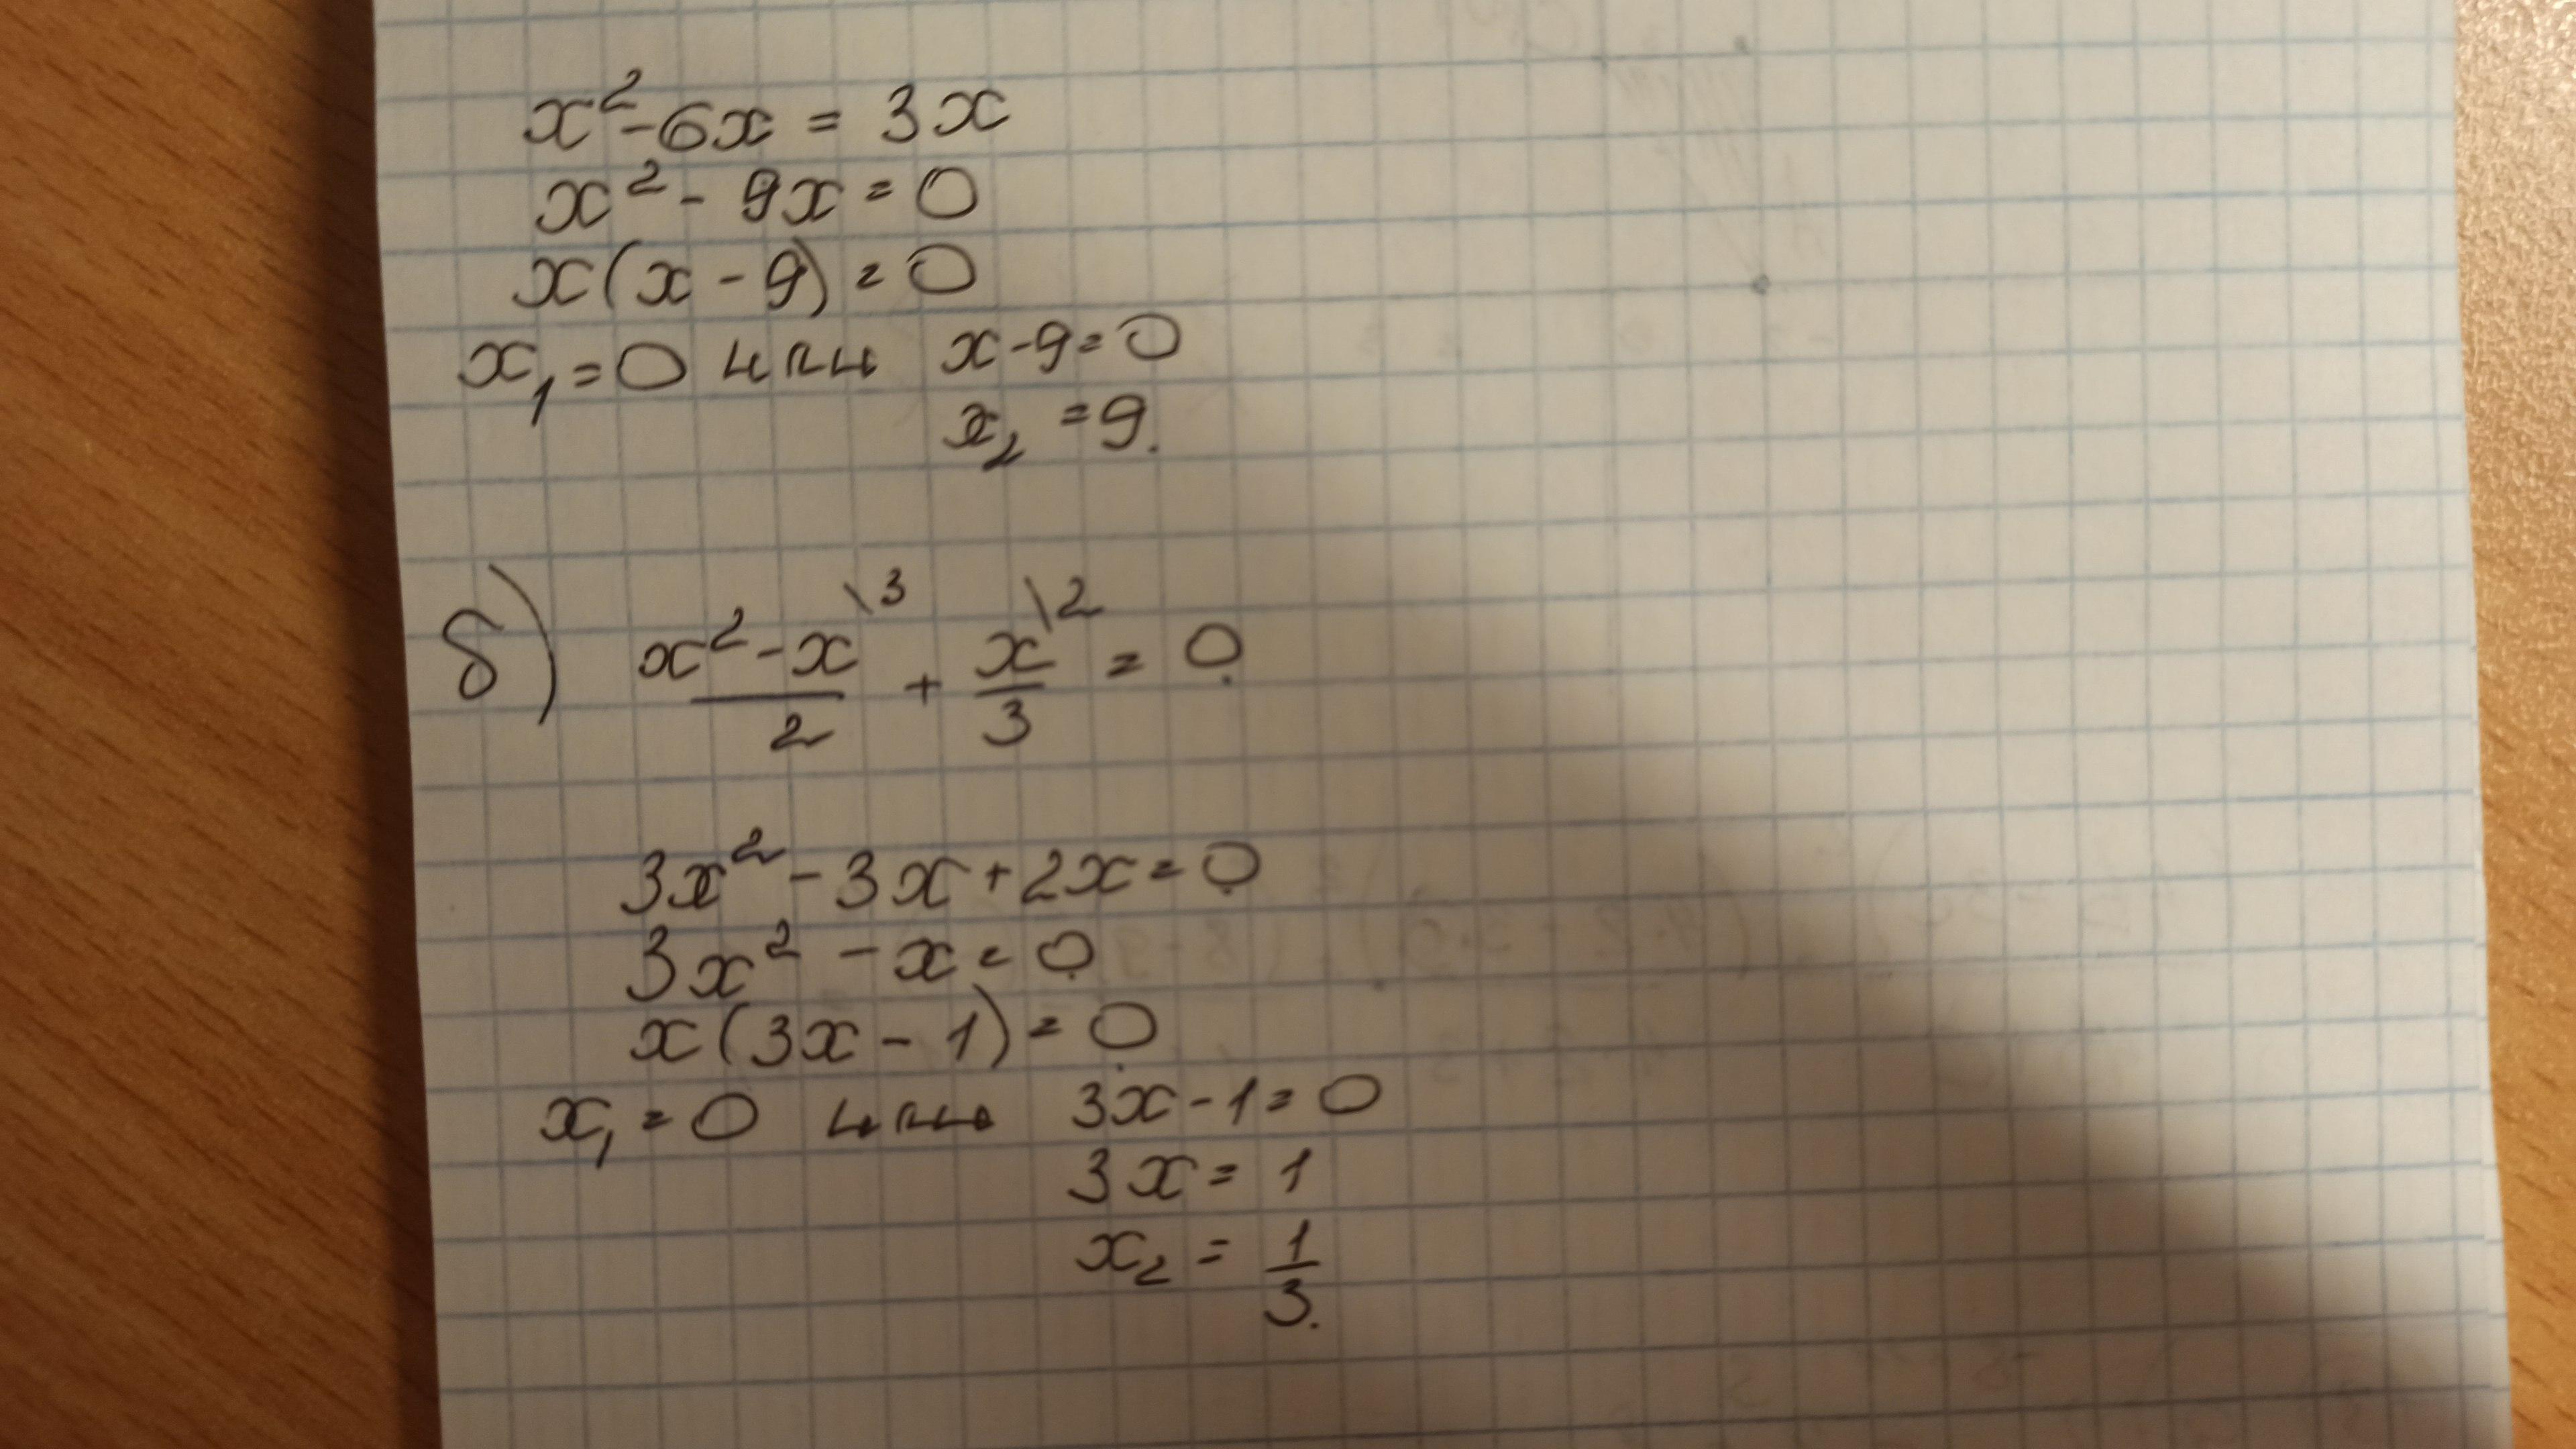 x²-6x = 3x
x² - 9x = 0
x(x - 9) = 0
x₁ = 0 или x-9=0
x₂ = 9.
б) (x²-x)/2 \3 + x/3 \2 = 0.
3x² - 3x + 2x = 0
3x² - x = 0
x(3x - 1) = 0
x₁ = 0 или 3x-1=0
3x = 1
x₂ = 1/3.